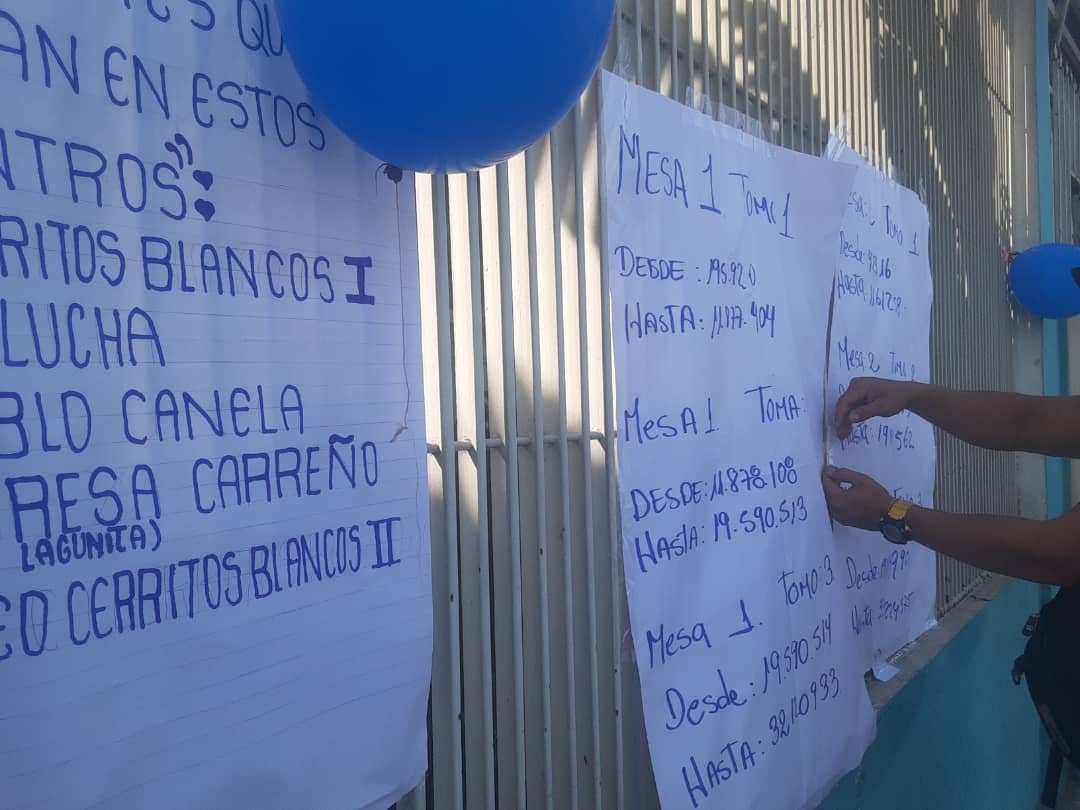 QU
AN EN ESTOS
NTROS"
RITOS BLANCOS I
LUCHA
BLO CANELA
RESA CARREÑO
LAGUNITA)
EO CERRITOS BLANCOS II
MESA 1 TOMO 1
DESDE: 196.920
HASTA: 11.877.404
MESA 1 TOMA:
DESDE: 11.878.108
HASTA: 19.590.513
Mesa 1. TOMO: 3
Desde: 19.590.514
HASTA: 32.110.933
TOMO 1
Desde: 9816
Hasta:
Mesa: 2
Hasta:
Desde:
Hasta: